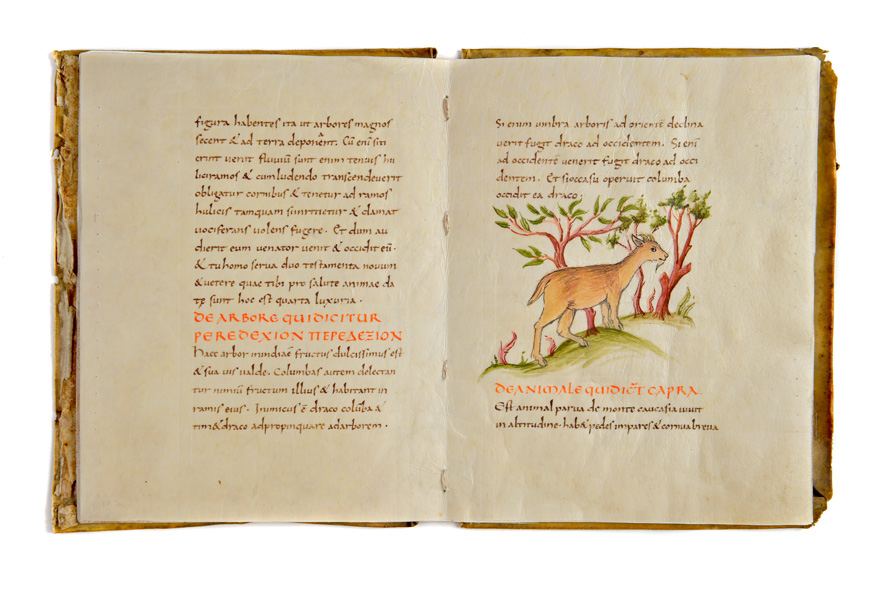 figura habentes ita ut arbores magnos
secent & ad terra deponent. Cū enī siti
erint venit fluviū sunt enim tenuis hu
liciramos & cumludendo transcendeverit
obligatur cornibus & tenetur ad ramos
hulicis tamquam sinretietur & clamat
vociferans volens fugere. Et dum au
dierit eum venator venit & occidit eū.
& tuhomo serva duo testamenta novum
& vetere quae tibi pro salute animae da
ta sunt hoc est quarta luxuria.
DE ARBORE QUIDICITUR
PEREDEXION ΠΕΡΕΔΕΞΙΟΝ
Haec arbor indiaē fructus dulcissimus est
& sua vis valde. Columbas autem delectan
tur nimiū fructum illius & habitant in
ramis eius. Inimicus ē draco colūba &
tim& draco adpropinquare adarborem.
Si enim umbra arboris ad orientē declina
verit fugit draco ad occidentem. Si enī
ad occidentē venerit fugit draco ad occi
dentem. Et sioccasu operuit columba
occidit ea draco;
DEANIMALE QUIDICĪT CAPRA.
Est animal parva de monte caucasia vivit
in altitudine. hab& pedes impares & cornua breva